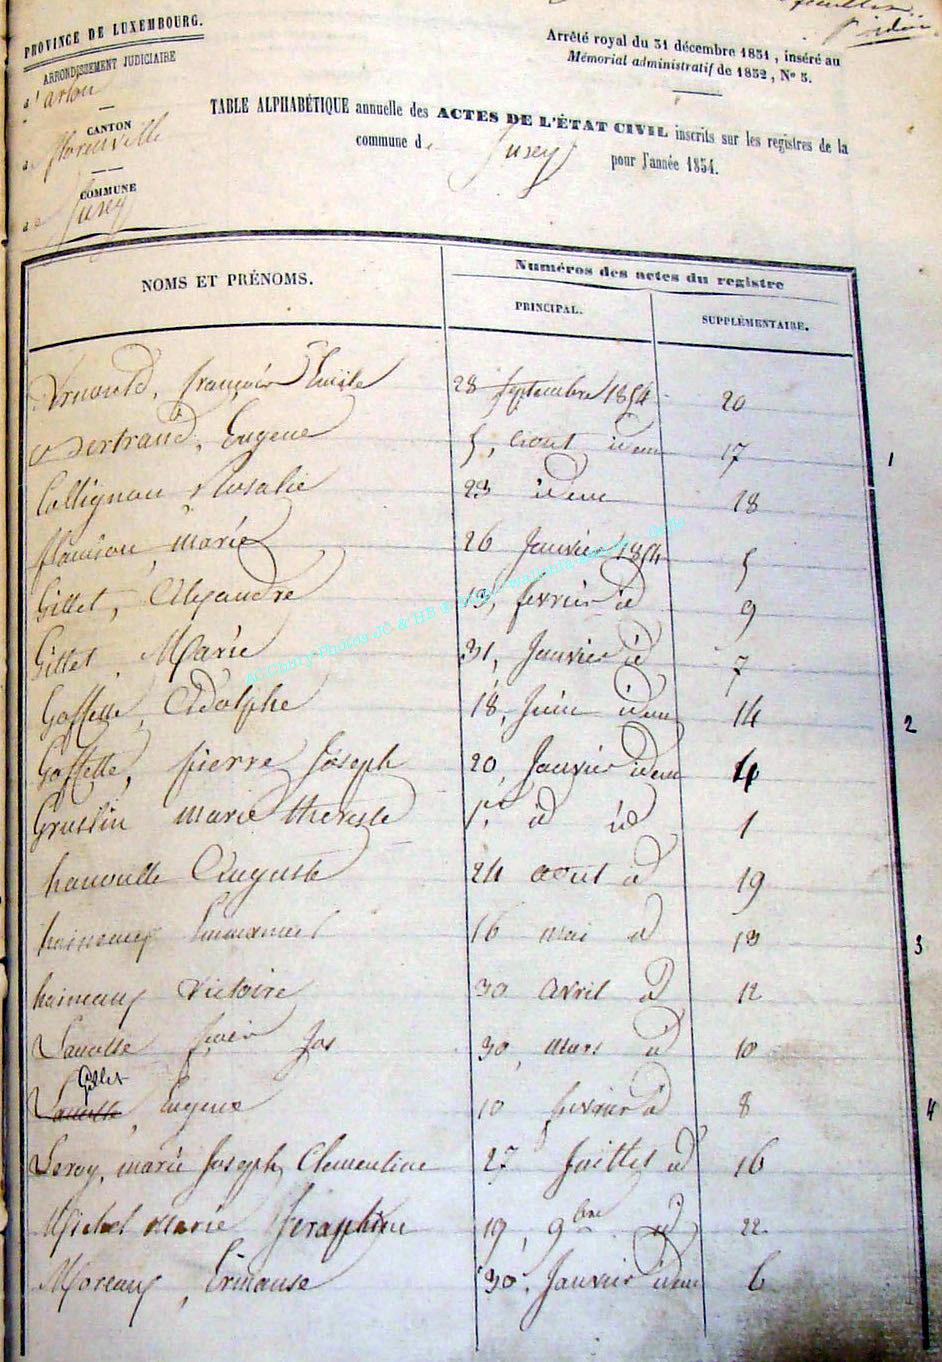 PROVINCE DE LUXEMBOURG.
ARRONDISSEMENT JUDICIAIRE
d'arlon
CANTON
de florenville
COMMUNE
de Jusey
Arrêté royal du 31 décembre 1831, inséré au
Mémorial administratif de 1832, No 3.
TABLE ALPHABÉTIQUE annuelle des ACTES DE L'ÉTAT CIVIL inscrits sur les registres de la
commune de Jusey pour l'année 1854.
NOMS ET PRÉNOMS.
Numéros des actes du registre
PRINCIPAL.
SUPPLÉMENTAIRE.
Arnould, françois Emile 28 septembre 1854 20
Bertrand, Eugene 5, aout idem 17
1
Collignon Rosalie 23 idem 18
marie 26 Janvier 1854 5
Gillet, Alexandre 13, fevrier id 9
Gillet, Marie 31, Janvier id 7
Goffette, Adolphe 18, Juin idem 14
2
Goffette, pierre Joseph 20, Janvier idem 4
Gruslin marie therese 1er id id 1
Auguste 24 aout id 19
haineaux Emmanuel 16 mai id 13
3
haineaux Victoire 30 avril id 12
Jos 30, mars id 10
Gillet
Eugene 10 fevrier id 8
4
Leroy, marie Joseph Clementine 27 Juillet id 16
Michel Marie Seraphine 19, 9bre id 22
Moreaux, Ermanse 30, Janvier idem 6